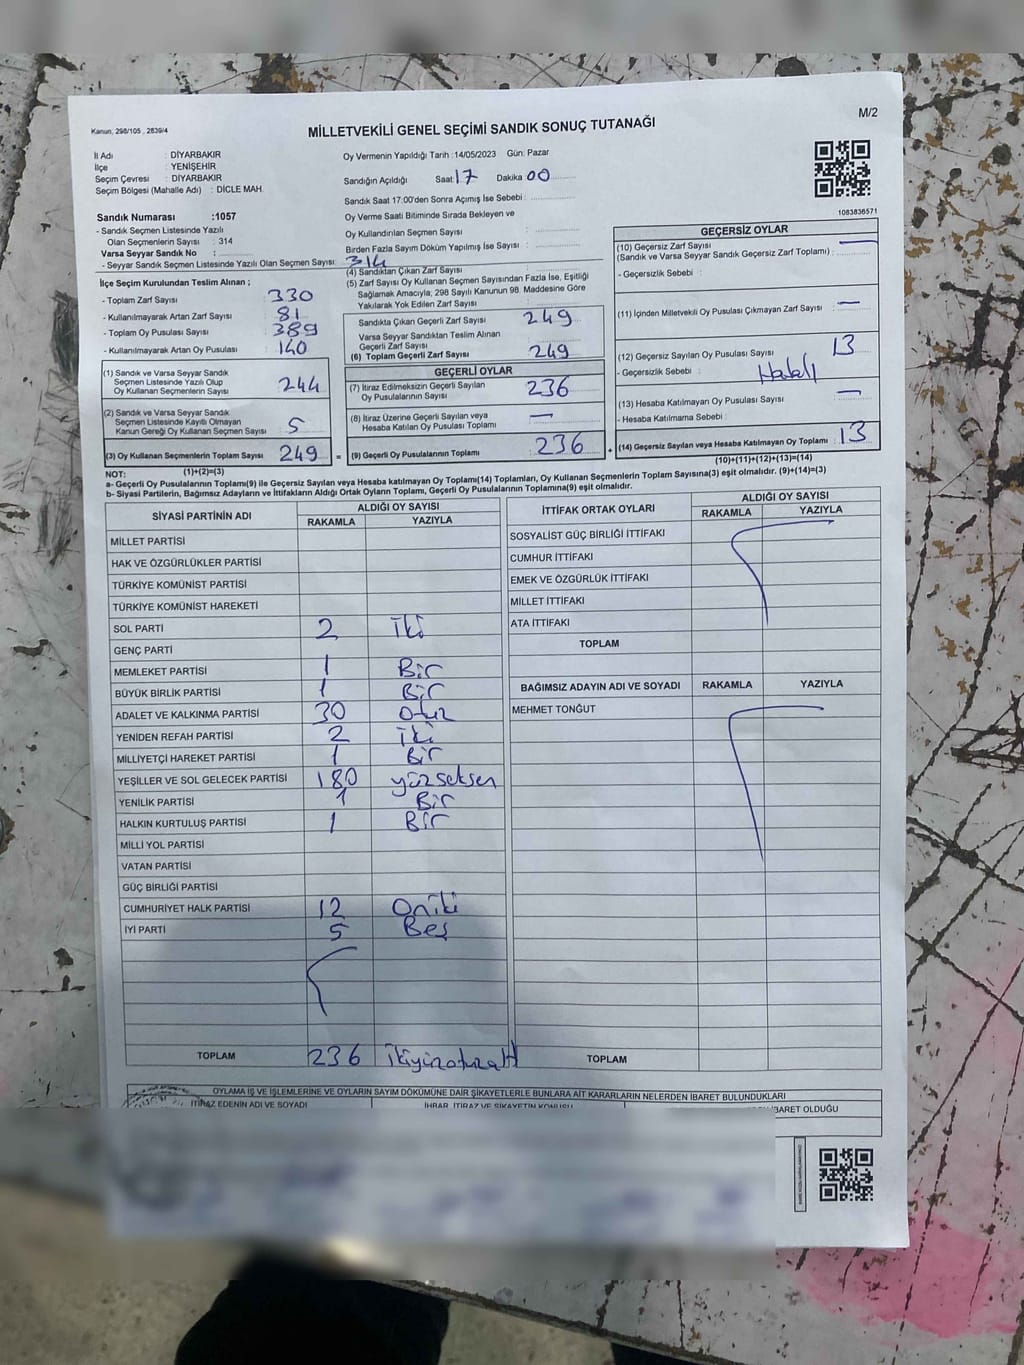 M/2
Kanun; 298/105 , 2839/4
MİLLETVEKİLİ GENEL SEÇİMİ SANDIK SONUÇ TUTANAĞI
İl Adı : DİYARBAKIR
İlçe : YENİŞEHİR
Seçim Çevresi : DİYARBAKIR
Seçim Bölgesi (Mahalle Adı) : DİCLE MAH.
Oy Vermenin Yapıldığı Tarih :14/05/2023 Gün: Pazar
Sandığın Açıldığı Saat 17 Dakika 00
Sandık Saat 17:00'den Sonra Açımış İse Sebebi :
Oy Verme Saati Bitiminde Sırada Bekleyen ve
Oy Kullandırılan Seçmen Sayısı :
Birden Fazla Sayım Döküm Yapılmış İse Sayısı :
1083836571
Sandık Numarası :1057
- Sandık Seçmen Listesinde Yazılı
Olan Seçmenlerin Sayısı : 314
Varsa Seyyar Sandık No :
- Seyyar Sandık Seçmen Listesinde Yazılı Olan Seçmen Sayısı: 314
İlçe Seçim Kurulundan Teslim Alınan ;
- Toplam Zarf Sayısı : 330
- Kullanılmayarak Artan Zarf Sayısı : 81
- Toplam Oy Pusulası Sayısı : 389
- Kullanılmayarak Artan Oy Pusulası : 140
(1) Sandık ve Varsa Seyyar Sandık
Seçmen Listesinde Yazılı Olup
Oy Kullanan Seçmenlerin Sayısı : 244
(2) Sandık ve Varsa Seyyar Sandık
Seçmen Listesinde Kayıtlı Olmayan
Kanun Gereği Oy Kullanan Seçmen Sayısı : 5
(3) Oy Kullanan Seçmenlerin Toplam Sayısı : 249 =
(4) Sandıktan Çıkan Zarf Sayısı :
(5) Zarf Sayısı Oy Kullanan Seçmen Sayısından Fazla İse, Eşitliği
Sağlamak Amacıyla, 298 Sayılı Kanunun 98. Maddesine Göre
Yakılarak Yok Edilen Zarf Sayısı :
Sandıkta Çıkan Geçerli Zarf Sayısı : 249
Varsa Seyyar Sandıktan Teslim Alınan
Geçerli Zarf Sayısı :
(6) Toplam Geçerli Zarf Sayısı : 249
GEÇERLİ OYLAR
(7) İtiraz Edilmeksizin Geçerli Sayılan
Oy Pusulalarının Sayısı : 236
(8) İtiraz Üzerine Geçerli Sayılan veya
Hesaba Katılan Oy Pusulası Toplamı : —
(9) Geçerli Oy Pusulalarının Toplamı : 236 +
GEÇERSİZ OYLAR
(10) Geçersiz Zarf Sayısı
(Sandık ve Varsa Seyyar Sandık Geçersiz Zarf Toplamı) : —
- Geçersizlik Sebebi :
(11) İçinden Milletvekili Oy Pusulası Çıkmayan Zarf Sayısı : —
(12) Geçersiz Sayılan Oy Pusulası Sayısı : 13
- Geçersizlik Sebebi : Hatalı
(13) Hesaba Katılmayan Oy Pusulası Sayısı : —
- Hesaba Katılmama Sebebi :
(14) Geçersiz Sayılan veya Hesaba Katılmayan Oy Toplamı : 13
NOT: (1)+(2)=(3) (10)+(11)+(12)+(13)=(14)
a- Geçerli Oy Pusulalarının Toplamı(9) ile Geçersiz Sayılan veya Hesaba katılmayan Oy Toplamı(14) Toplamları, Oy Kullanan Seçmenlerin Toplam Sayısına(3) eşit olmalıdır. (9)+(14)=(3)
b- Siyasi Partilerin, Bağımsız Adayların ve İttifakların Aldığı Ortak Oyların Toplamı, Geçerli Oy Pusulalarının Toplamına(9) eşit olmalıdır.
SİYASİ PARTİNİN ADI ALDIĞI OY SAYISI
RAKAMLA YAZIYLA
MİLLET PARTİSİ
HAK VE ÖZGÜRLÜKLER PARTİSİ
TÜRKİYE KOMÜNİST PARTİSİ
TÜRKİYE KOMÜNİST HAREKETİ
SOL PARTİ 2 iki
GENÇ PARTİ
MEMLEKET PARTİSİ 1 Bir
BÜYÜK BİRLİK PARTİSİ 1 Bir
ADALET VE KALKINMA PARTİSİ 30 otuz
YENİDEN REFAH PARTİSİ 2 iki
MİLLİYETÇİ HAREKET PARTİSİ 1 Bir
YEŞİLLER VE SOL GELECEK PARTİSİ 180 yüzseksen
YENİLİK PARTİSİ 1 Bir
HALKIN KURTULUŞ PARTİSİ 1 Bir
MİLLİ YOL PARTİSİ
VATAN PARTİSİ
GÜÇ BİRLİĞİ PARTİSİ
CUMHURİYET HALK PARTİSİ 12 Oniki
İYİ PARTİ 5 Beş
TOPLAM 236 ikiyüzotuzaltı
İTTİFAK ORTAK OYLARI ALDIĞI OY SAYISI
RAKAMLA YAZIYLA
SOSYALİST GÜÇ BİRLİĞİ İTTİFAKI
CUMHUR İTTİFAKI
EMEK VE ÖZGÜRLÜK İTTİFAKI
MİLLET İTTİFAKI
ATA İTTİFAKI
TOPLAM
BAĞIMSIZ ADAYIN ADI VE SOYADI RAKAMLA YAZIYLA
MEHMET TONĞUT
TOPLAM
OYLAMA İŞ VE İŞLEMLERİNE VE OYLARIN SAYIM DÖKÜMÜNE DAİR ŞİKAYETLERLE BUNLARA AİT KARARLARIN NELERDEN İBARET BULUNDUKLARI
İTİRAZ EDENİN ADI VE SOYADI İHBAR, İTİRAZ VE ŞİKAYETİN KONUSU İBARET OLDUĞU